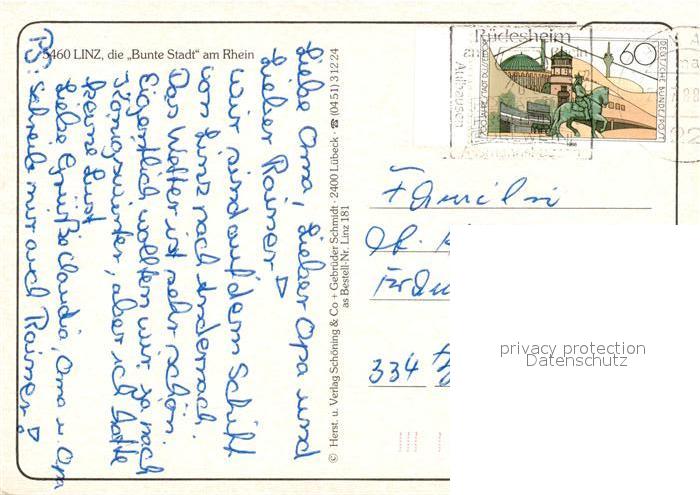 5460 LINZ, die „Bunte Stadt“ am Rhein
Liebe Oma, lieber Opa und
lieber Rainer!
Wir sind auf dem Schiff
von Linz nach Andernach.
Das Wetter ist sehr schön.
Eigentlich wollten wir ja nach
Königswinter, aber ich hatte
keine Lust
Liebe Grüße Claudia, Oma u. Opa
PS: Schreib mir auch Rainer!
© Herst. u. Verlag Schöning & Co + Gebrüder Schmidt · 2400 Lübeck · ☎ (04 51) 3 12 24
as Bestell-Nr. Linz 181
Rüdesheim
am Rhein
60
DEUTSCHE BUNDESPOST
1988
Familie
334
privacy protection
Datenschutz